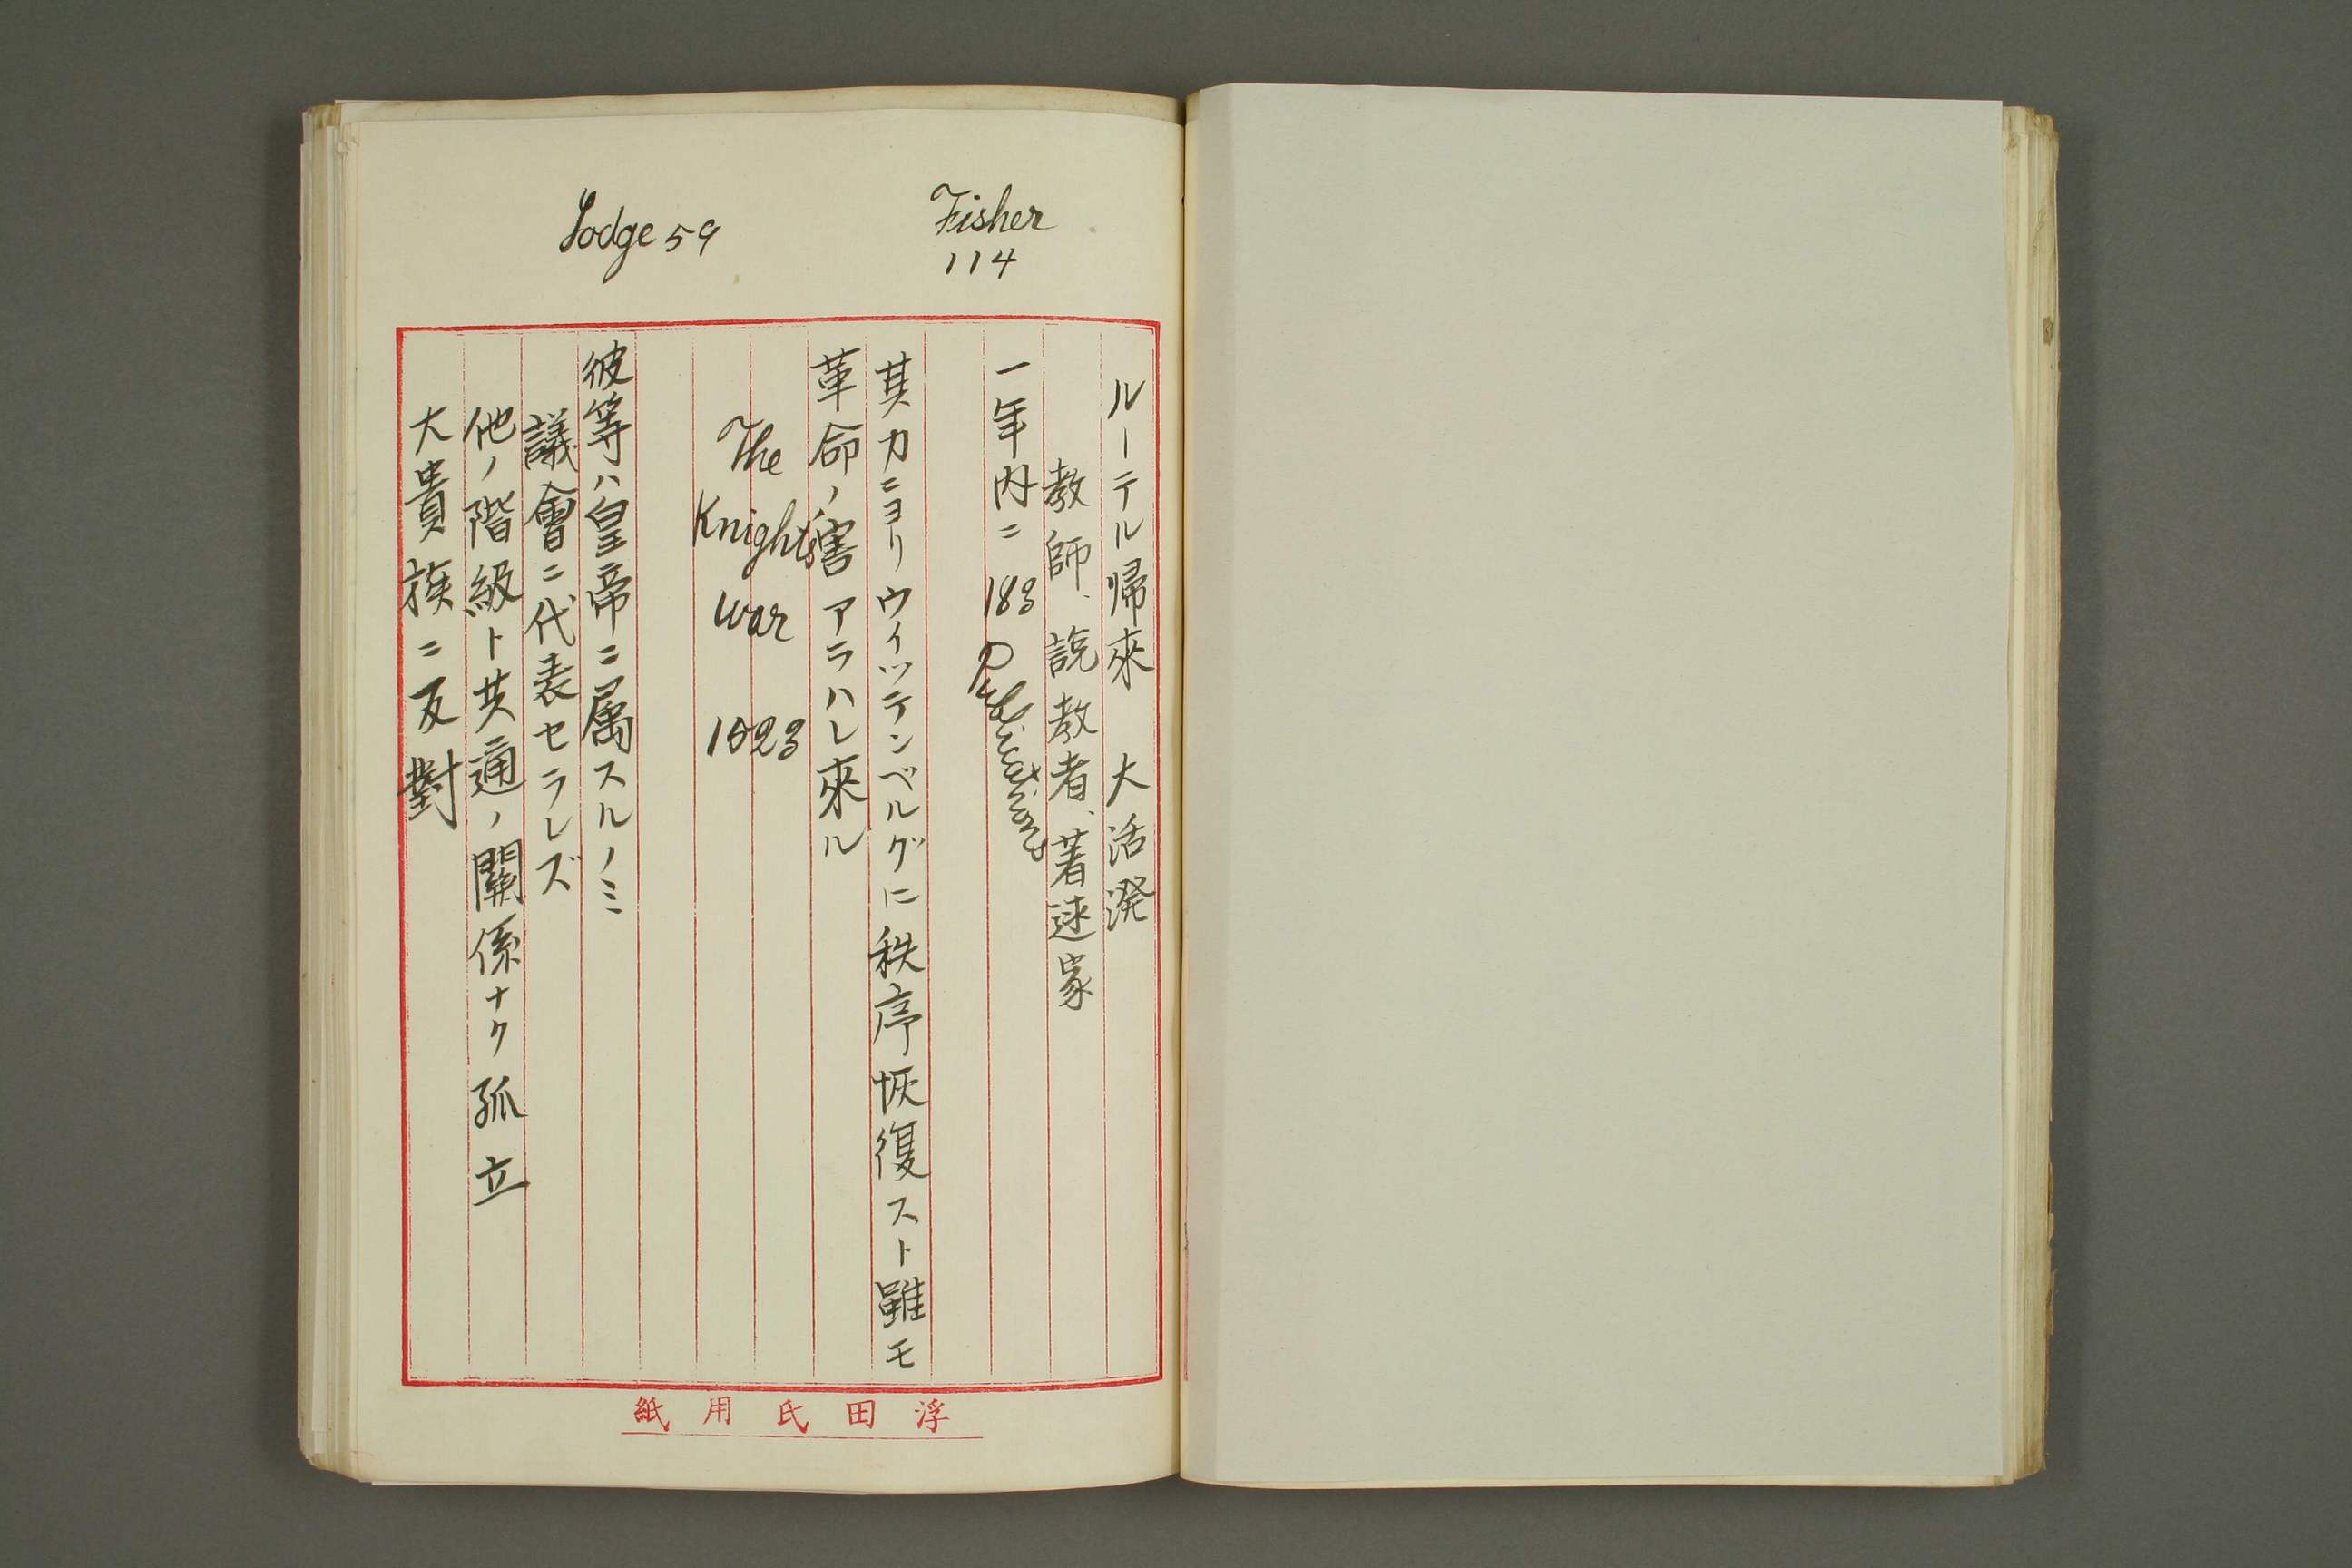 Fisher
114
Lodge 59
ルーテル帰來 大活溌
教師、説教者、著述家
一年内ニ 183 Publications
其力ニヨリウイッテンベルグに秩序恢復スト雖モ
革命ノ害アラハレ來ル
The
Knights
War
1523
彼等ハ皇帝ニ属スルノミ
議會ニ代表セラレズ
他ノ階級ト共通ノ關係ナク孤立
大貴族ニ反對
浮田氏用紙